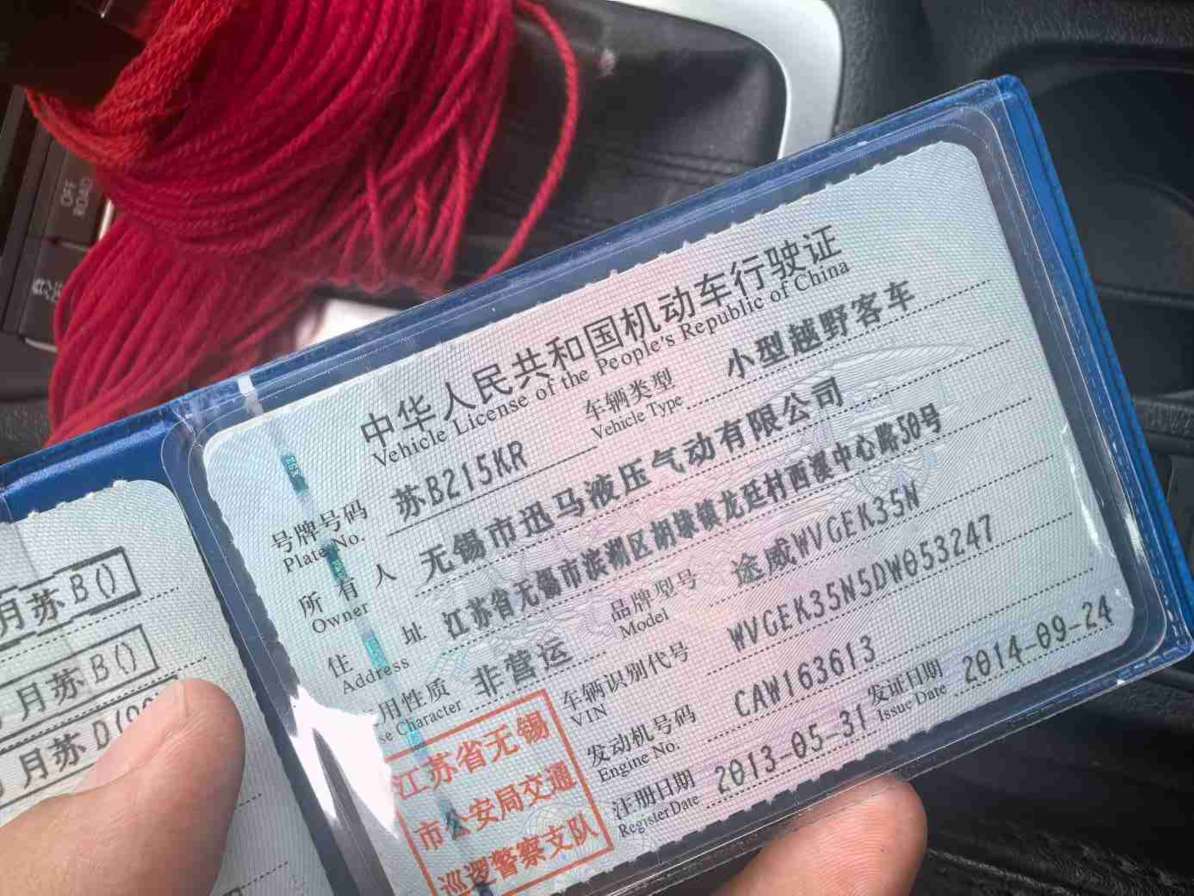 中华人民共和国机动车行驶证
Vehicle License of the People's Republic of China
号牌号码 苏B215KR 车辆类型 小型越野客车
Plate No. Vehicle Type
所有人 无锡市迅马液压气动有限公司
Owner
住址 江苏省无锡市滨湖区胡埭镇龙延村西溪中心路50号
Address
用性质 非营运 品牌型号 途威WVGEK35N
se Character Model
车辆识别代号 WVGEK35N5DW053247
VIN
发动机号码 CAW163613
Engine No.
注册日期 2013-05-31 发证日期 2014-09-24
Register Date Issue Date
江苏省无锡
市公安局交通
巡逻警察支队
月苏B()
月苏B()
月苏D(
OFF
ROAD